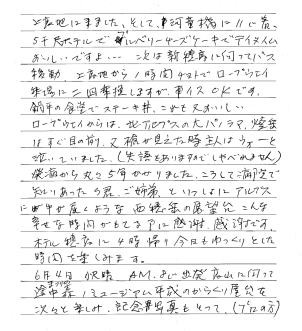 上高地に来ました。そして、河童橋に11じ着、
5千尺ホテルでブルーベリーチーズケーキでティタイム
おいしいですよ… 次は新穂高に向ってバス
移動 上高地から1時間チョトでロープウェイ
乗場に 二回乗換しますが、車イスOKです。
鍋平の食堂でステーキ丼、これも又おいしい
ロープウェイからは、北アルプスの大パノラマ、焼岳
はすぐ目の前、又槍が見えた時主人はウォーと
泣いていました。(失語もありますのでしゃべれません)
飛騨から丸5年かかりました。こうして満室で
知りあったS君、ご姉弟といっしょにアルプス
に 手が届くような西穂高の展望台 こんな
幸せな時間がもてるアに感謝、感謝です。
ホテル穂高に4時帰り今日もゆっくりとした
時間を楽しみます。
6月4日 快晴 AM.8じ出発高山に向って
途中まつりの森ミュージアム平成のからくり屋台を
次々と楽しみ、記念写真もとって、(プロの方)